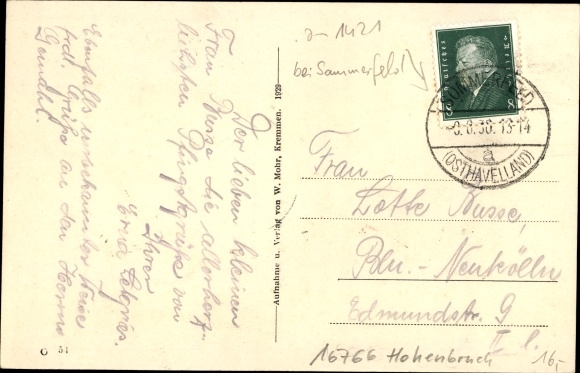 Der lieben kleinen
Frau Busse die allerherz-
lichsten Pfingstgrüße von
Ihrer
Erna
Ebenfalls unbekannter Weise
frdl. Grüße an den Herrn
Gemahl.
O 51
Aufnahme u. Verlag von W. Mohr, Kremmen. 1929
1421
bei Sommerfeld!
Deutsches Reich
8 8
SOMMERFELD
6.30.13-14
a
(OSTHAVELLAND)
Frau
Lotte Busse,
Bln.-Neukölln
Edmundstr. 9
II l.
16766 Hohenbruch
16,-